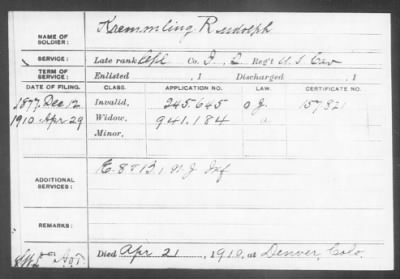 NAME OF SOLDIER: Kremmling Rudolph
SERVICE: Late rank Co. Regt U.S. Cav
TERM OF SERVICE: Enlisted , 1 Discharged , 1
DATE OF FILING. CLASS. APPLICATION NO. LAW. CERTIFICATE NO.
1877 Dec. 12 Invalid, 245.645 157821
1910 Apr 29 Widow, 941.184 a
Minor,
ADDITIONAL SERVICES: N.J. Inf
REMARKS:
Died Apr 21, 1910, at Denver, Colo.